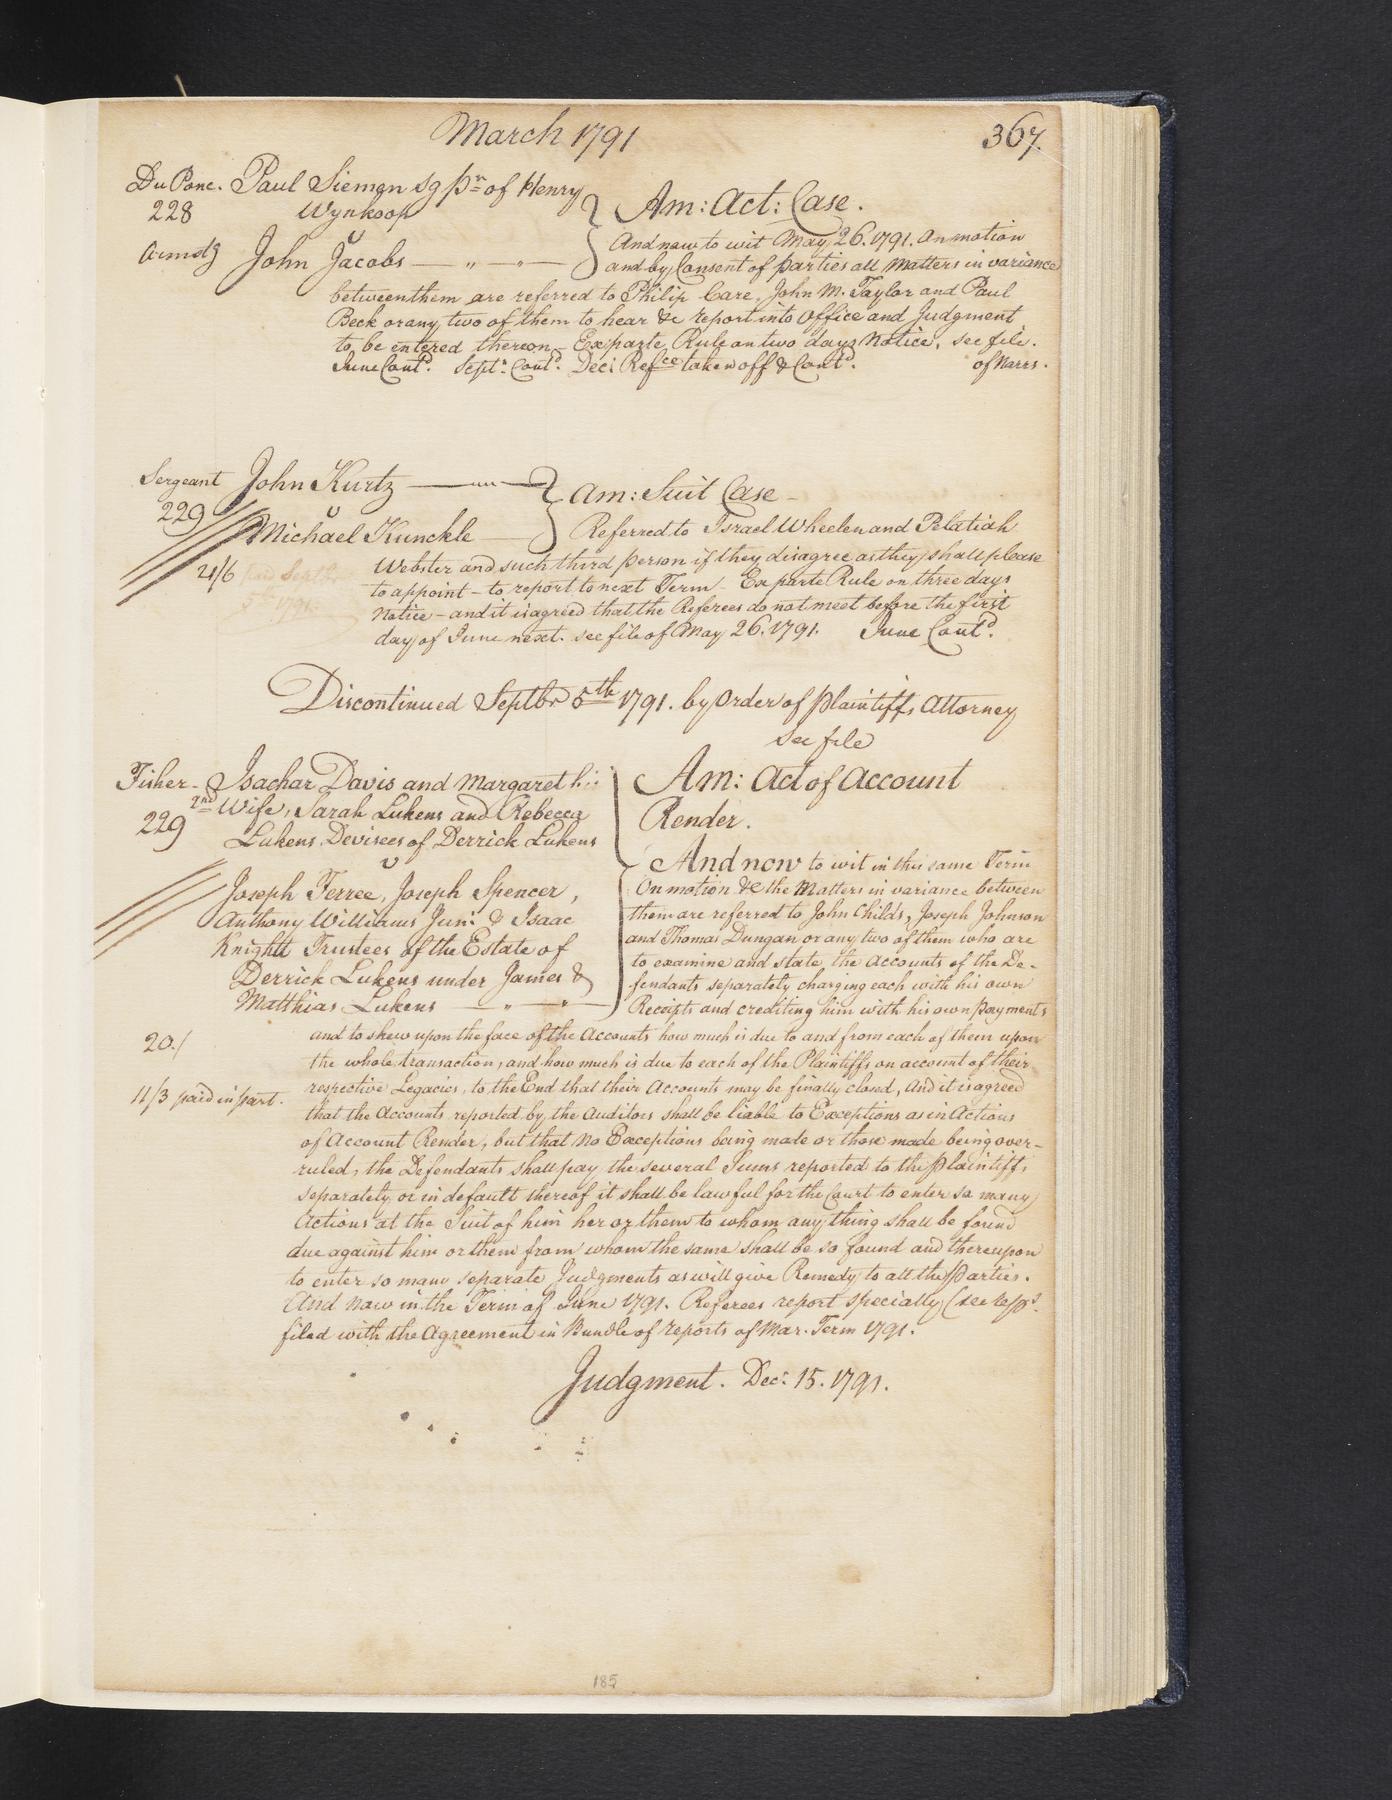 March 1791
367.
DuPonc. Paul Siemen sg pr of Henry
228 Wynkoop
v
Armstg John Jacobs — " — " —
Am: Act: Case.
And now to wit May 26. 1791. On motion
and by Consent of parties all Matters in variance
between them are referred to Philip Care, John M. Taylor and Paul
Beck or any two of them to hear &c report into Office and Judgment
to be entered thereon. Exparte Rule on two days Notice, see file.
June Contd. Septr. Contd. Dec: Refce taken off & Contd. of Narrs.
Sergeant John Kurtz
229 v
Michael Kunckle
Am: Suit Case -
Referred to Israel Wheelen and Pelatiah
Webster and such third person if they disagree as they shall please
to appoint - to report to next Term - Exparte Rule on three days
Notice - and it is agreed that the Referees do not meet before the first
day of June next. see file of May 26. 1791. June Contd.
21/6 paid Septr
1791.
Discontinued Septbr 5th 1791. by Order of plaintiffs Attorney
see file
Fisher - Isachar Davis and Margaret his
2nd Wife, Sarah Lukens and Rebecca
229 Lukens Devisees of Derrick Lukens
v
Joseph Ferree, Joseph Spencer,
Anthony Williams Junr & Isaac
Knightt Trustees of the Estate of
Derrick Lukens under James &
Matthias Lukens — " — " —
Am: Act of Account
Render.
And now to wit in this same Term
On motion &c the Matters in variance between
them are referred to John Childs, Joseph Johnson
and Thomas Dungan or any two of them who are
to examine and state the Accounts of the De-
fendants separately charging each with his own
Receipts and crediting him with his own payments
20./ and to shew upon the face of the Accounts how much is due to and from each of them upon
the whole transaction, and how much is due to each of the Plaintiffs on account of their
11/3 paid in part. respective Legacies, to the End that their Accounts may be finally closed, And it is agreed
that the Accounts reported by the Auditors shall be liable to Exceptions as in Actions
of Account Render, but that no Exceptions being made or those made being over-
ruled, the Defendants shall pay the several Sums reported to the Plaintiffs
separately or in default thereof it shall be lawful for the Court to enter so many
Actions at the Suit of him her or them to whom any thing shall be found
due against him or them from whom the same shall be so found and thereupon
to enter so many separate Judgments as will give Remedy to all the parties.
And now in the Term of June 1791. Referees report specially (see repot.
filed with the Agreement in Bundle of reports of Mar. Term 1791.
Judgment. Decr. 15. 1791.
185